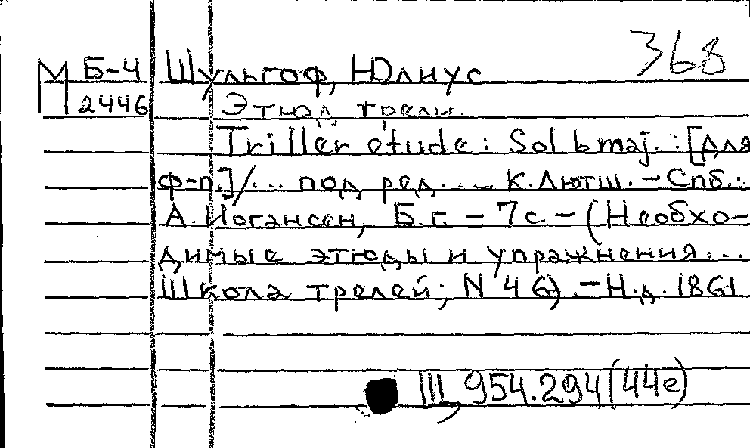 368
М Б-4 Шульгоф, Юлиус
2446 Этюд трели.
Triller etude: Sol b maj. : [для
ф-п.]/... под ред. ... К. Лютш. - Спб.:
А. Иогансен, Б.г. - 7с. - (Необхо-
димые этюды и упражнения...
Школа трелей; N 46). - Н.д. 1861
III, 954.294(44е)